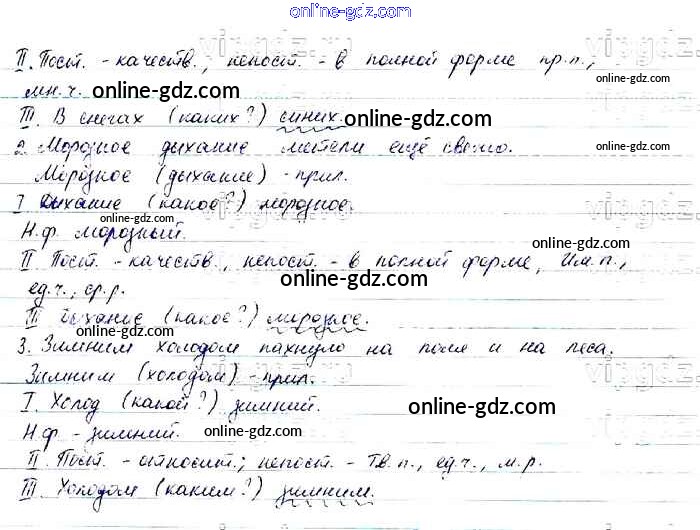 online-gdz.com
II. Пост. - качеств., непост. - в полной форме пр.п.,
мн.ч. online-gdz.com online-gdz.com
III. В снегах (каких?) синих. online-gdz.com
2. Морозное дыхание метели ещё свежо.
online-gdz.com
Морозное (дыхание) - прил.
I Дыхание (какое?) морозное.
online-gdz.com
Н.ф. морозный. online-gdz.com
II Пост. - качеств., непост. - в полной форме, Им.п.,
online-gdz.com
ед.ч., ср.р.
III Дыхание (какое?) морозное.
online-gdz.com
3. Зимним холодом пахнуло на поля и на леса.
Зимним (холодом) - прил.
I. Холод (какой?) зимний. online-gdz.com
Н.ф - зимний. online-gdz.com
II. Пост. - относит.; непост. - Тв.п., ед.ч., м.р.
III. Холодом (каким?) зимним.
online-gdz.com